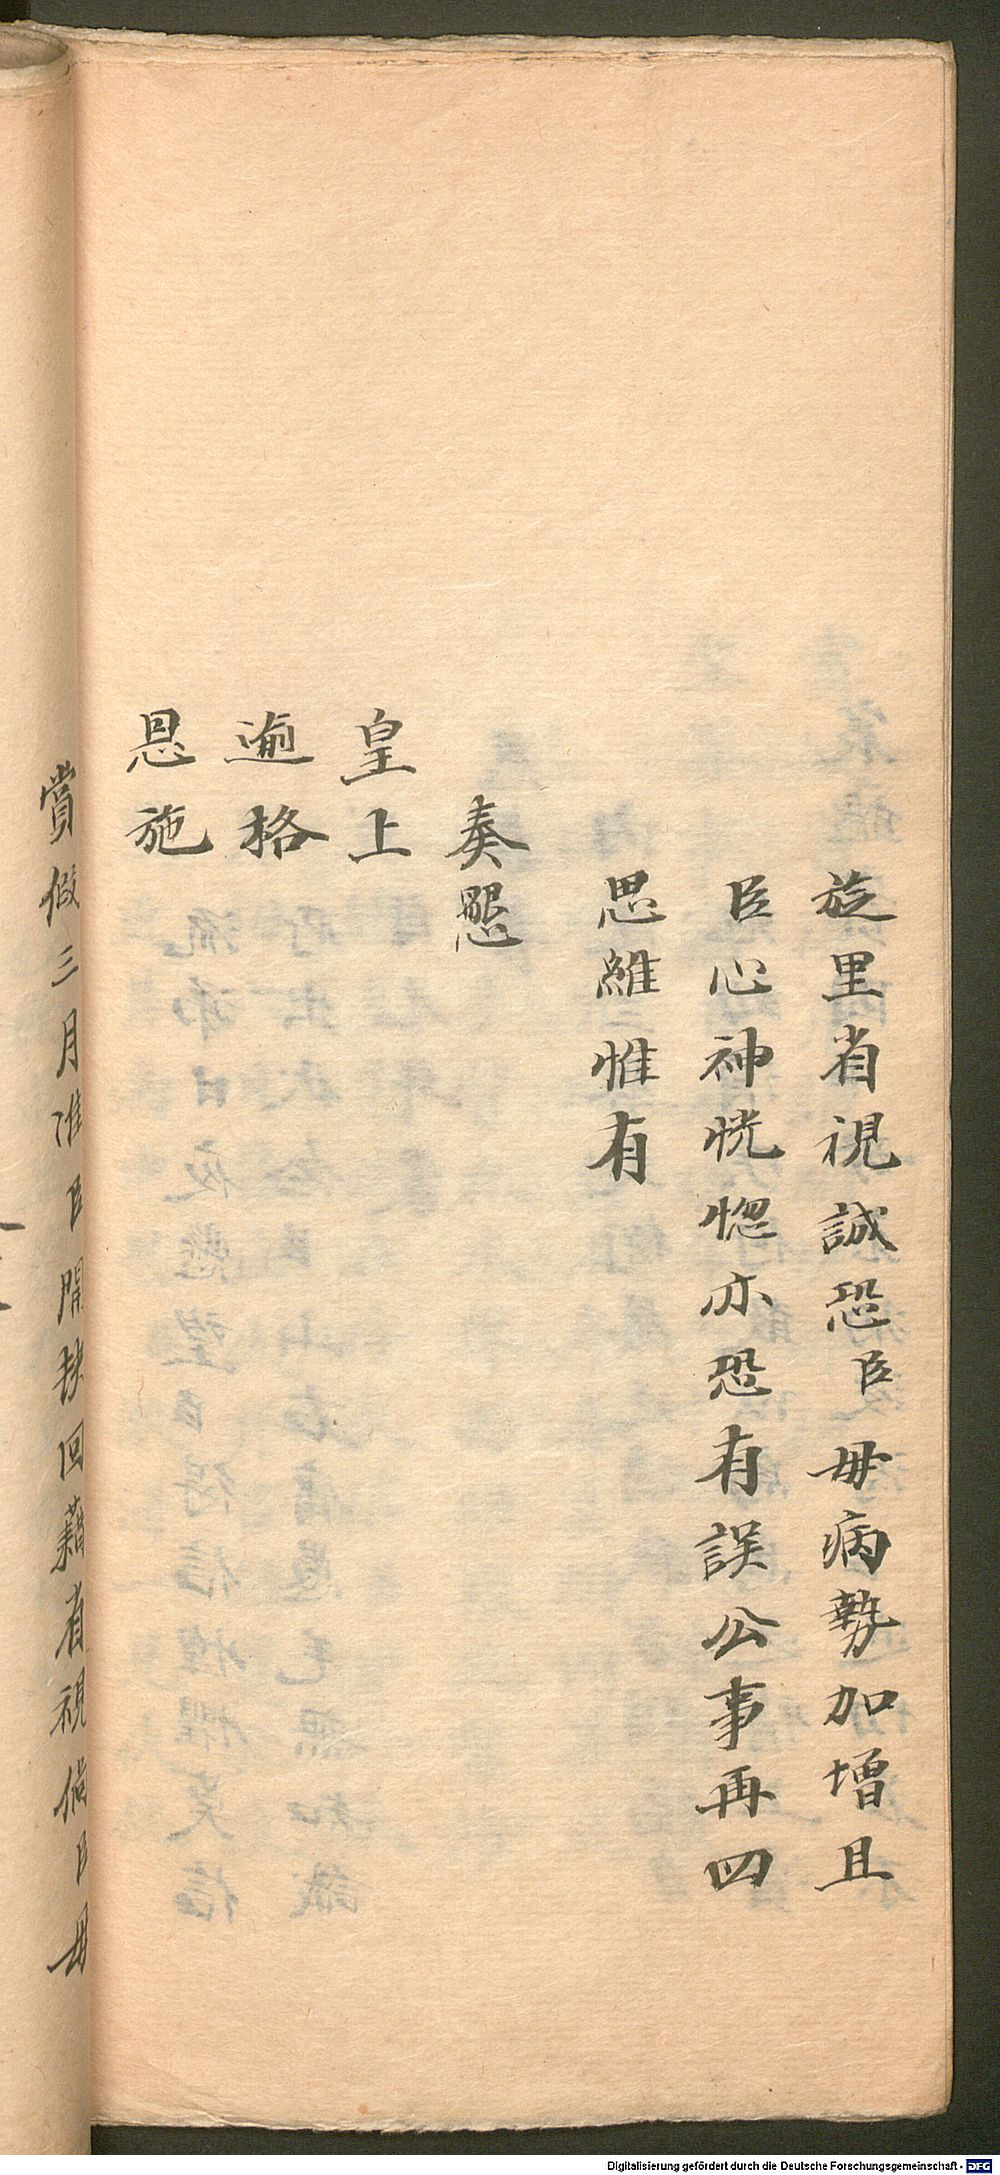 旋里省視誠恐臣母病勢加增且
臣心神恍惚亦恐有誤公事再四
思維惟有
奏懇
皇上
逾格
恩施
賞假三月准臣開缺回籍省視倘臣母
Digitalisierung gefördert durch die Deutsche Forschungsgemeinschaft - DFG